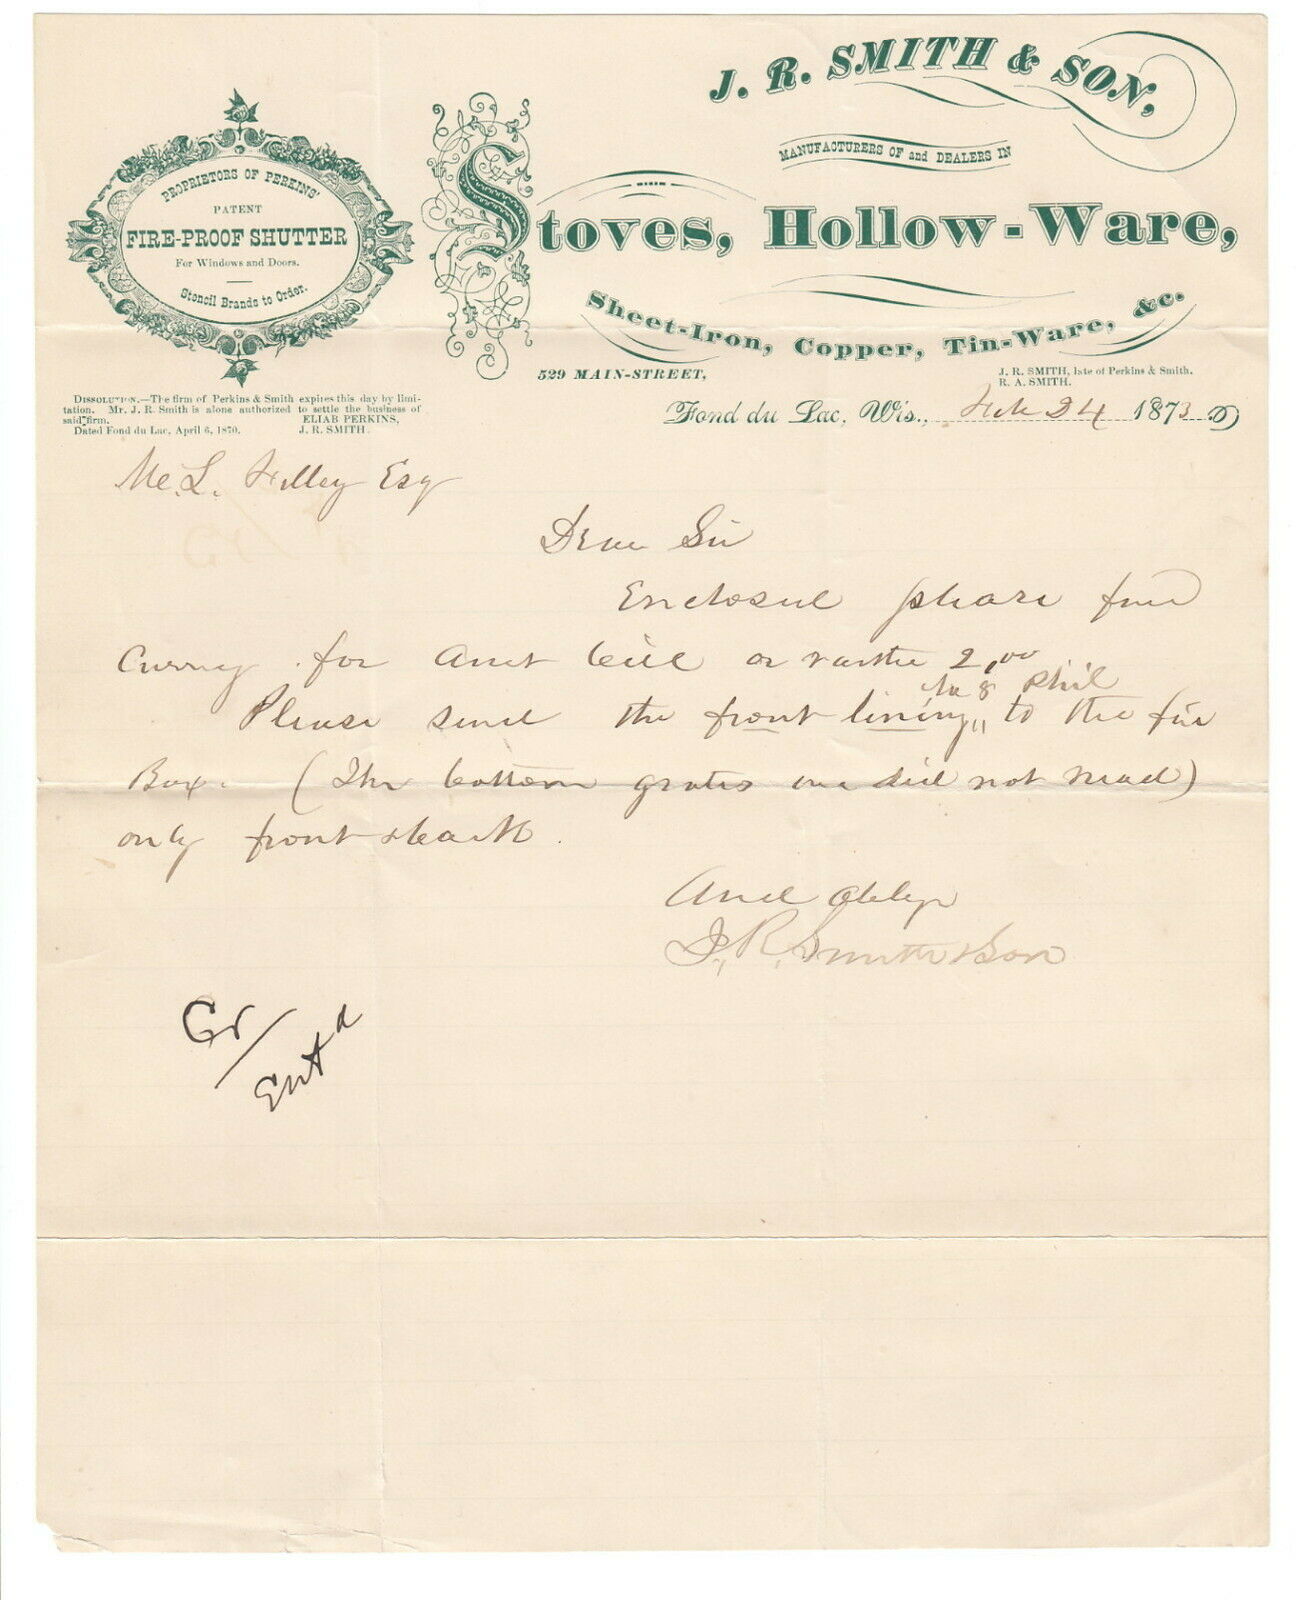 J. R. SMITH & SON,
MANUFACTURERS OF and DEALERS IN
Stoves, Hollow-Ware,
Sheet-Iron, Copper, Tin-Ware, &c.
PROPRIETORS OF PERKINS'
PATENT
FIRE-PROOF SHUTTER
For Windows and Doors.
Stencil Brands to Order.
529 MAIN-STREET,
J. R. SMITH, late of Perkins & Smith.
R. A. SMITH.
DISSOLUTION.—The firm of Perkins & Smith expires this day by limi-
tation. Mr. J. R. Smith is alone authorized to settle the business of
said firm. ELIAB PERKINS,
Dated Fond du Lac, April 6, 1870. J. R. SMITH.
Fond du Lac, Wis., Feb 24 1873
L. Filley Esq
Dear Sir
Enclosed please find
for bill or 2,00
No 8 Phil
Please send the front lining to the fire
Box. (The bottom grates we did not need)
only front hearth
And oblige
J. R. Smith & Son
Cr
Entd